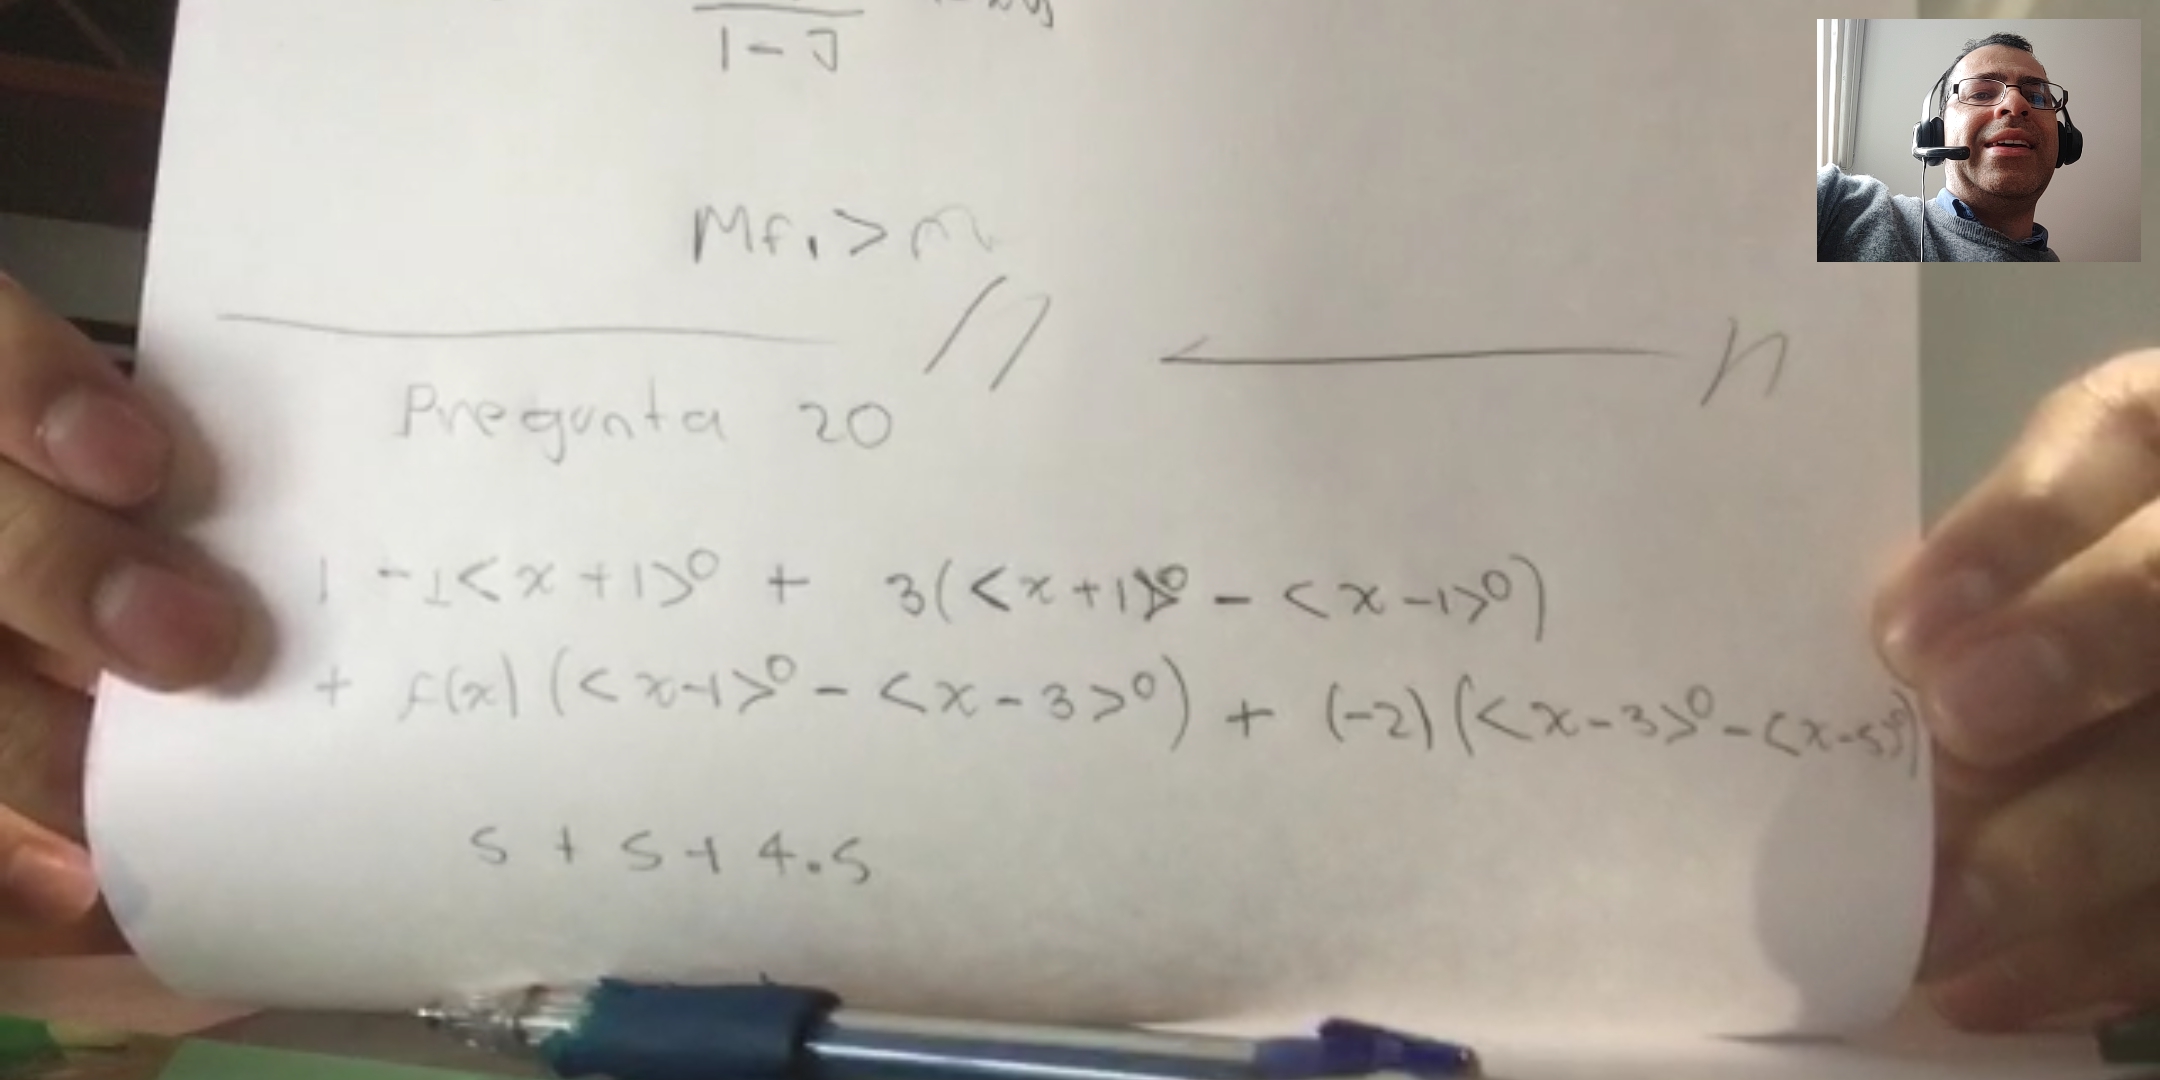 1 - J
Mf1 > m
Pregunta 20
1 - 1<x + 1>⁰ + 3(<x + 1>⁰ - <x - 1>⁰)
+ f(x) (<x-1>⁰ - <x - 3>⁰) + (-2) (<x - 3>⁰ - <x - 5>⁰)
5 + 5 + 4.5